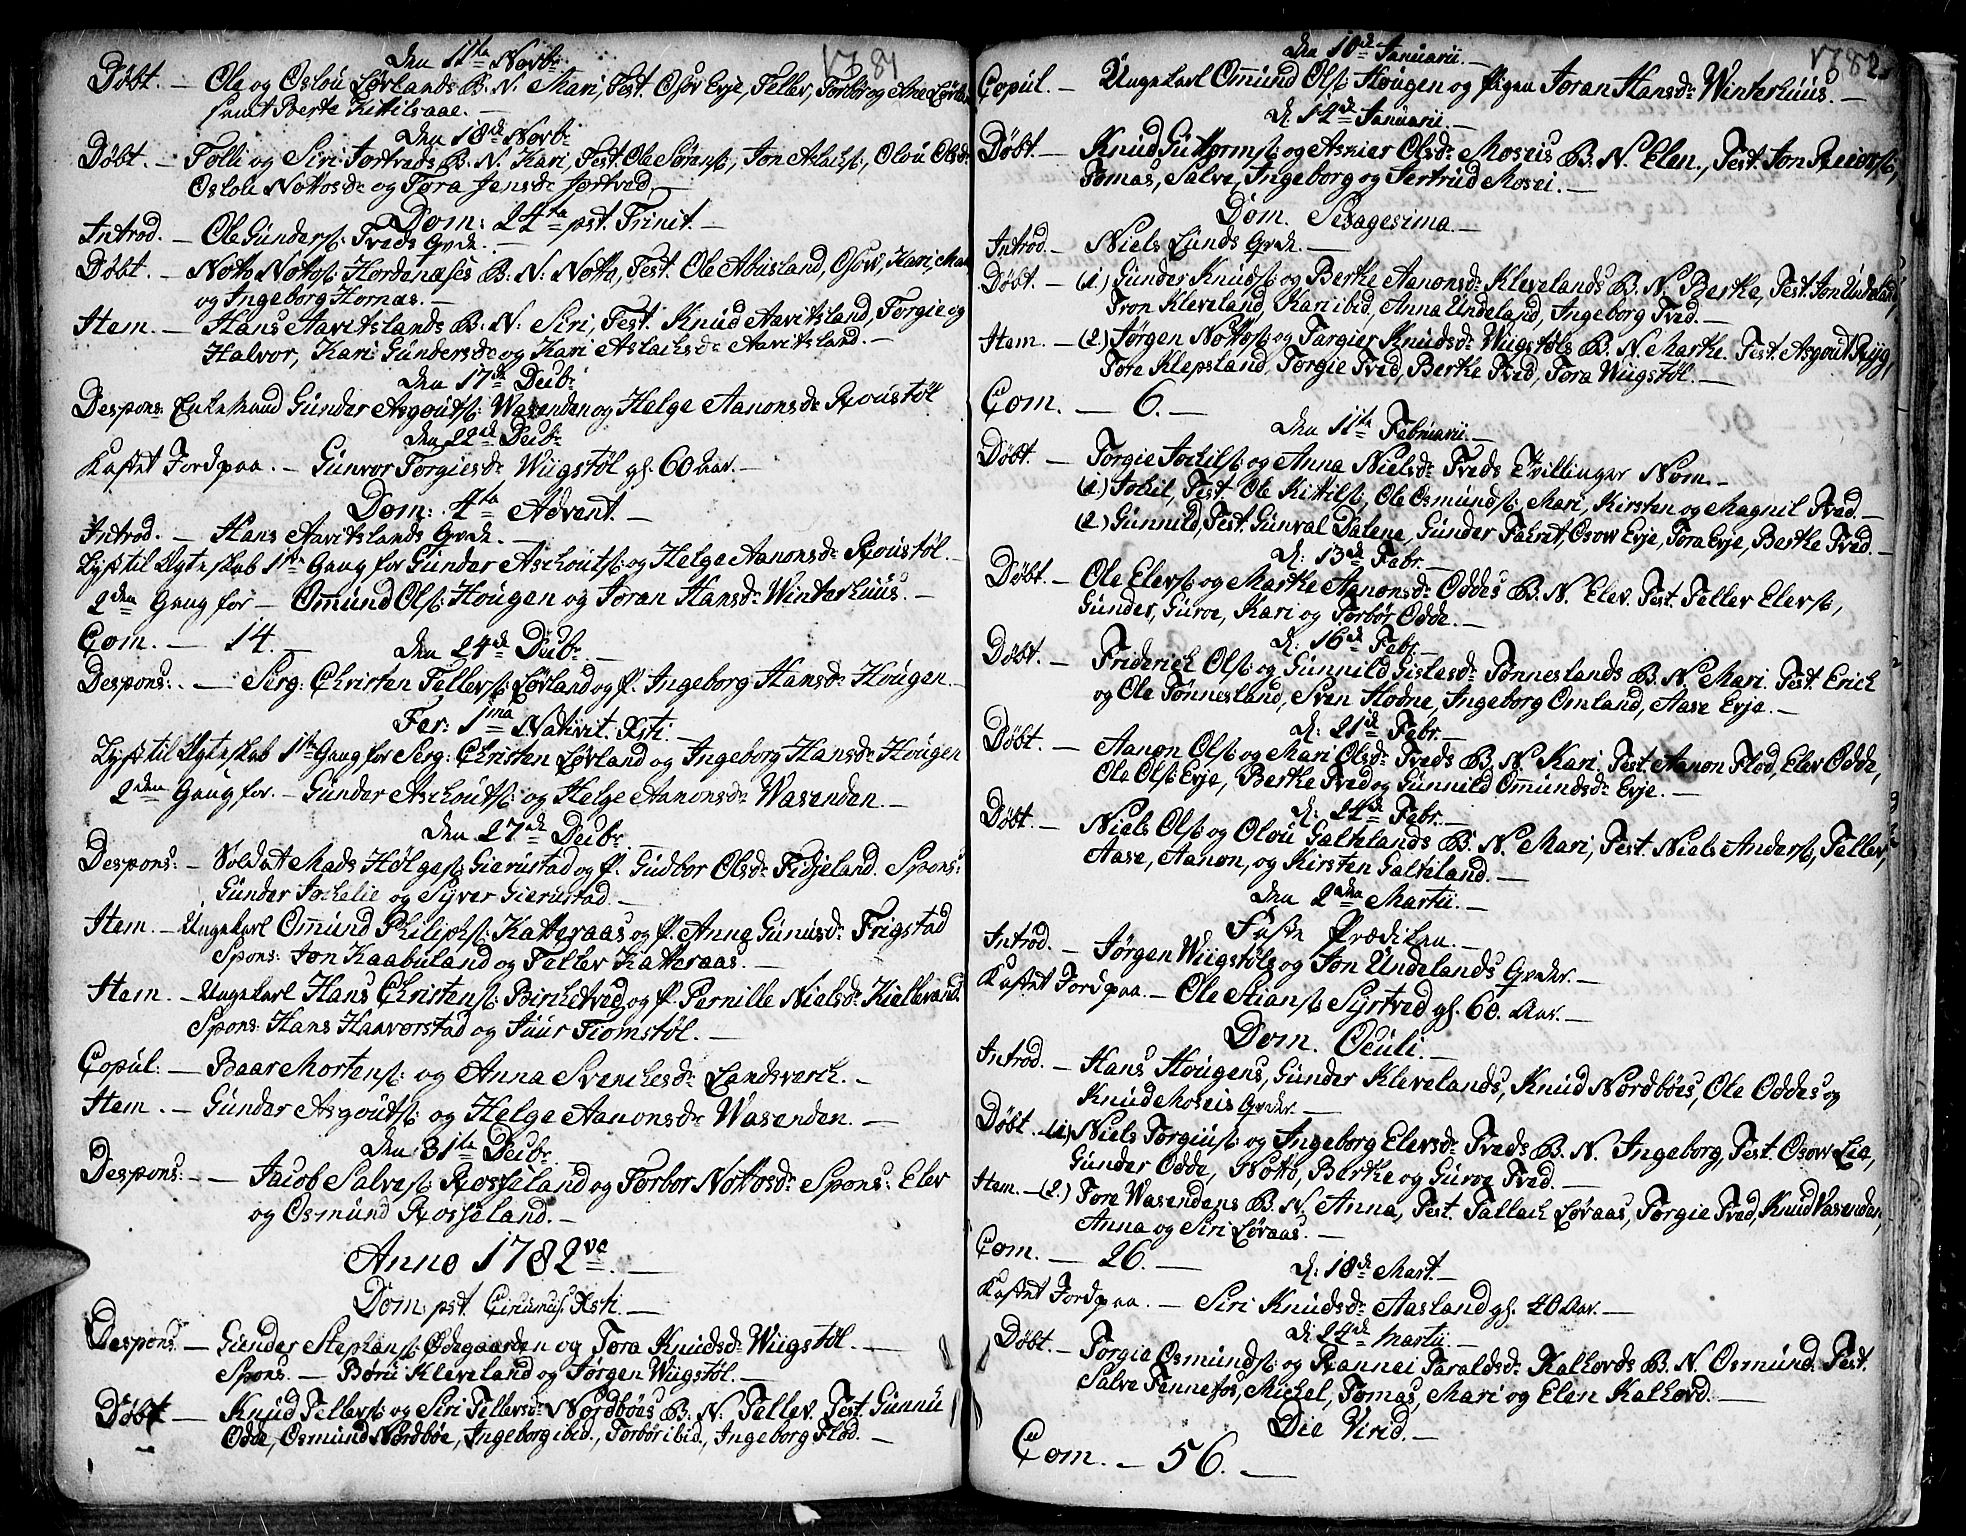 1781
Den 11te Novbr
Døbt. — Ole og Oslou Lørlands B. N. Mari, Test. Osov Evje, Teller, Torbør og Ane Lørl.
samt Berte Kittilsaae. —
Den 18de Novbr
Døbt. — Tolli og Siri Jortveds B. N. Kari, Test. Ole Sørens:, Jon Aslaks:, Olou Olsdr
Oslou Nottosdr og Tora Jensdr Jortved. —
Dom: 24ta pst. Trinit. —
Introd. — Ole Gunders: Tveds Qvde. —
Døbt. — Notto Nottos: Hordenæses B: N: Notto, Test. Ole Abusland, Osow, Kari, Mari
og Ingeborg Hornæs. —
Item. — Hans Aavitslands B: N: Siri, Test. Knud Aavitsland, Torgie og
Halvor, Kari Gundersdr og Kari Aslachsdr Aavitsland. —
Den 17de Decbr
Despons: Enkemand Gunder Asgouts: Wasenden og Helge Aanonsdr Røustøl
Den 22de Decbr
Kastet Jord paa. — Gunvor Torgiesdr Wiigstøl gl. 60 Aar. —
Dom: 4ta Advent. —
Introd. — Hans Aavitslands Qvde. —
Lyst til Ægteskab 1ste Gang for Gunder Aschouts: og Helge Aanonsdr Røustøl. —
2den Gang for — Omund Ols: Hougen og Joran Hansdr Winterhuus. —
Com. — 14. —
Den 24de Decbr. —
Despons: — Serg: Christen Tellers: Lørland og P. Ingeborg Hansdr Hougen. —
Fer: 1ma Nativit. Xsti. —
Lyst til Ægteskab 1ste Gang for Serg: Christen Lørland og Ingeborg Hansdr Hougen
2den Gang for. — Gunder Aschouts: og Helge Aanonsdr Wasenden. —
Den 27de Decbr.
Despons: — Soldat Mads Hølges: Gierustad og P. Gudbor Olsdr Fidjeland. Spons:
Gunder Jochelie og Syver Gierustad. —
Item. — Ungekarl Omund Philiphs: Katteraas og P. Anne Gunusdr Frigstad
Spons: Jon Kaabuland og Teller Katteraas. —
Item. — Ungekarl Hans Christens: Birchetved og P. Pernille Nielsdr Kiellevand.
Spons: Hans Haaverstad og Juur Fiomstøl. —
Copul: — Baar Mortens: og Anna Svenchesdr Landsverch. —
Item. — Gunder Asgouts: og Helge Aanonsdr Wasenden. —
Den 31te Decbr
Despons: — Jacob Salves: Rosseland og Torbor Nottosdr Spons: Elev
og Osmund Rosseland. —
Anno 1782vo. —
Dom: pst. Circumcis. Xsti. —
Despons: — Gunder Stephans: Ødegaarden og Tora Knudsdr Wiigstøl. —
Spons. — Børu Kleveland og Jørgen Wiigstøl. —
Døbt — Knud Tellers: og Siri Tellersdr Nordbøes B: N: Teller. Test. Gunnu
Odde, Osmund Nordbøe, Ingeborg ibid., Torbør ibid., Ingeborg Flod. —
1782.
Den 10de Januarii. —
Copul. — Ungekarl Omund Ols: Hougen og Pigen Joran Hansdr Winterhuus. —
d: 14de Januarii. —
Døbt. — Knud Guttorms: og Asnier Olsdr Moseis B. N. Elen., Test. Jon Reiers:,
Tomas, Salve, Ingeborg og Jertrud Mosei. —
Dom. Sexagesima. —
Introd. — Niels Lunds Qvde. —
Døbt. — (1.) Gunder Knuds: og Berthe Aanonsdr Klevelands B. N. Berthe, Test. Jon Undeland,
Tron Kleveland, Kari ibid, Anna Undeland, Ingeborg Tved. —
Item. — (2.) Jørgen Nottos: og Targier Knudsdr Wiigstøls B. N. Marthe. Test. Asgout Ryg,
Tore Klepsland, Torgie Tved, Berthe Tved, Tora Wiigstøl. —
Com. — 6. —
Den 11te Februarii. —
Døbt. — Torgie Jochils: og Anna Nielsdr Tveds Tvillinger Nom. —
(1.) Jokil, Test. Ole Kittils:, Ole Osmunds:, Mari, Kirsten og Magnil Tved. —
(2.) Gunnild, Test. Gunval Dalene, Gunder Fakret, Osow Evje, Tora Evje, Berthe Tved. —
d: 13de Febr. —
Døbt. — Ole Elevs: og Marthe Aanonsdr Oddes B. N. Elev. Test. Teller Elevs:,
Gunder, Guroe, Kari og Torbør Odde. —
d: 16de Febr. —
Døbt. — Friderich Ols: og Gunnild Gislesdr Tønneslands B. N. Mari. Test. Erich
og Ole Tønnesland, Sven Hodne, Ingeborg Omland, Aase Evje. —
d: 21de Febr. —
Døbt. — Aanon Ols: og Mari Olsdr Tveds B. N. Kari. Test. Aanon Flod, Elev Odde,
Ole Ols: Evje, Berthe Tved og Gunnild Omundsdr Evje. —
d: 24de Febr. —
Døbt. — Niels Ols: og Olou Galtelands B. N. Mari, Test. Niels Anders:, Teller,
Aase, Aanon, og Kirsten Galteland. —
Den 2den Martii. —
Faste Prædiken. —
Introd. — Jørgen Wiigstøls og Jon Undelands Qvder. —
Kastet Jord paa. — Ole Stians: Syrtved gl. 60. Aar. —
Dom. Oculi. —
Introd. — Hans Hougens, Gunder Klevelands, Knud Nordbøes, Ole Oddes og
Knud Moseis Qvder. —
Døbt. — (1.) Niels Torgius: og Ingeborg Elevsdr Tveds B. N. Ingeborg, Test. Osow Lia,
Gunder Odde, Notto, Berthe og Guroe Tved. —
Item. — (2.) Tore Wasendens B. N. Anna, Test. Tallach Løvaas, Torgie Tved, Knud Wasenden,
Anna og Siri Løvaas. —
Com. — 26. —
d: 18de Mart. —
Kastet Jord paa. — Siri Knudsdr Aasland gl. 40 Aar. —
d: 24de Martii —
Døbt. — Torgie Osmunds: og Rannei Taraldsdr Kalhovds B. N. Osmund. Test.
Salve Fennefos, Michel, Tomas, Mari og Elen Kalhovd. —
Die Virid. —
Com. — 56. —